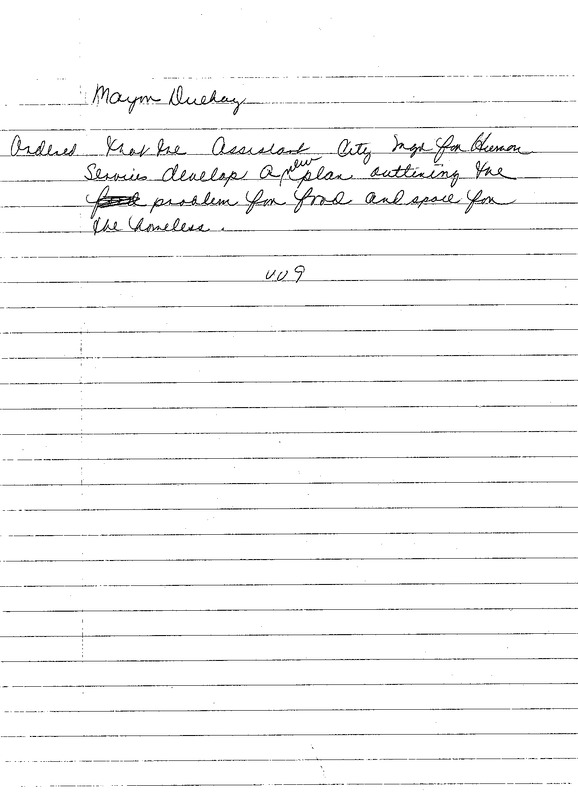 Mayor Duehay
Ordered that the Assistant City Mgr for Human
Services develop a new plan outlining the
problem for food and space for
the homeless.
VV9